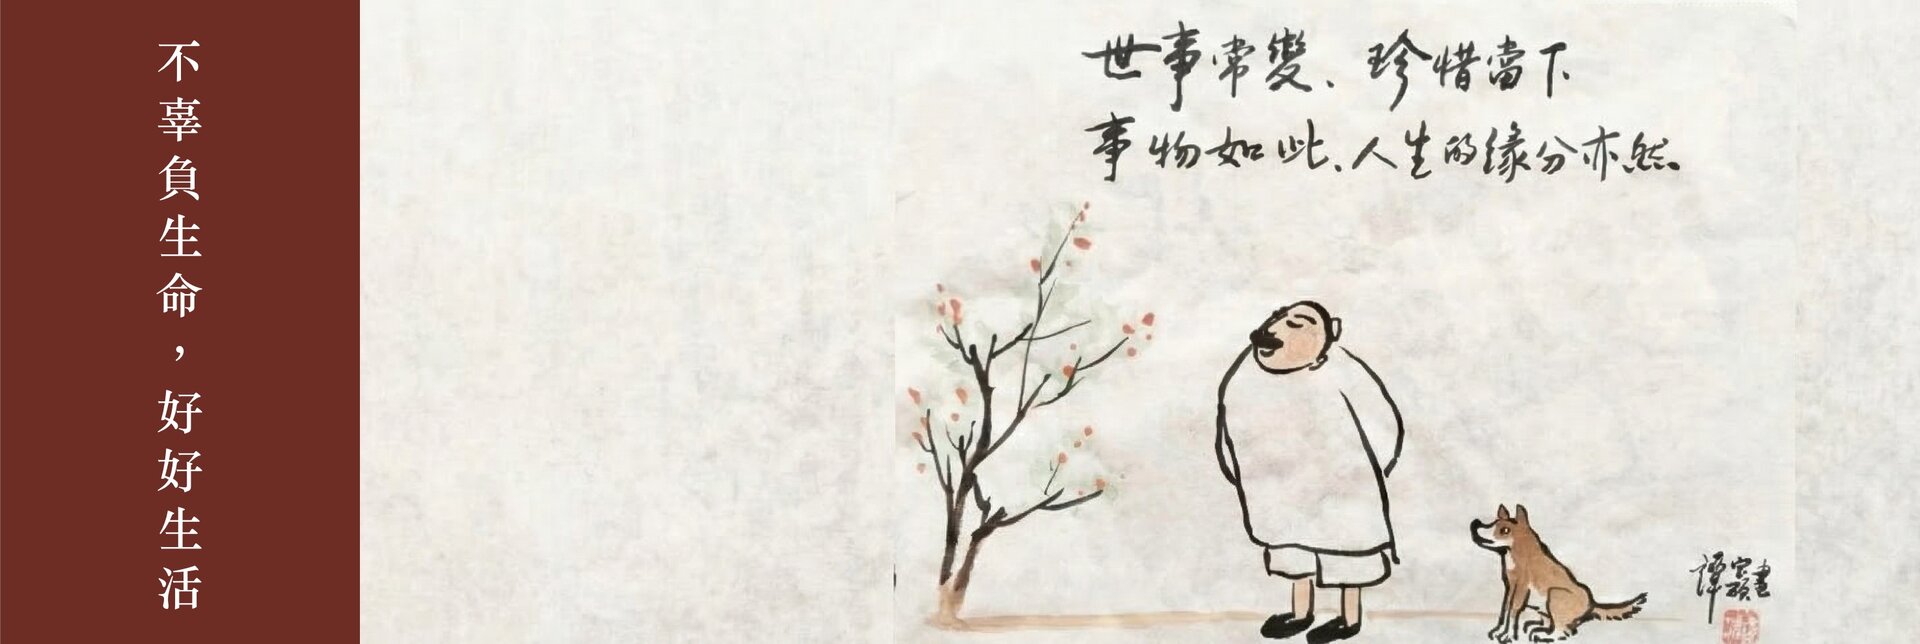 不辜負生命，好好生活
世事常變、珍惜當下
事物如此、人生的緣分亦然。